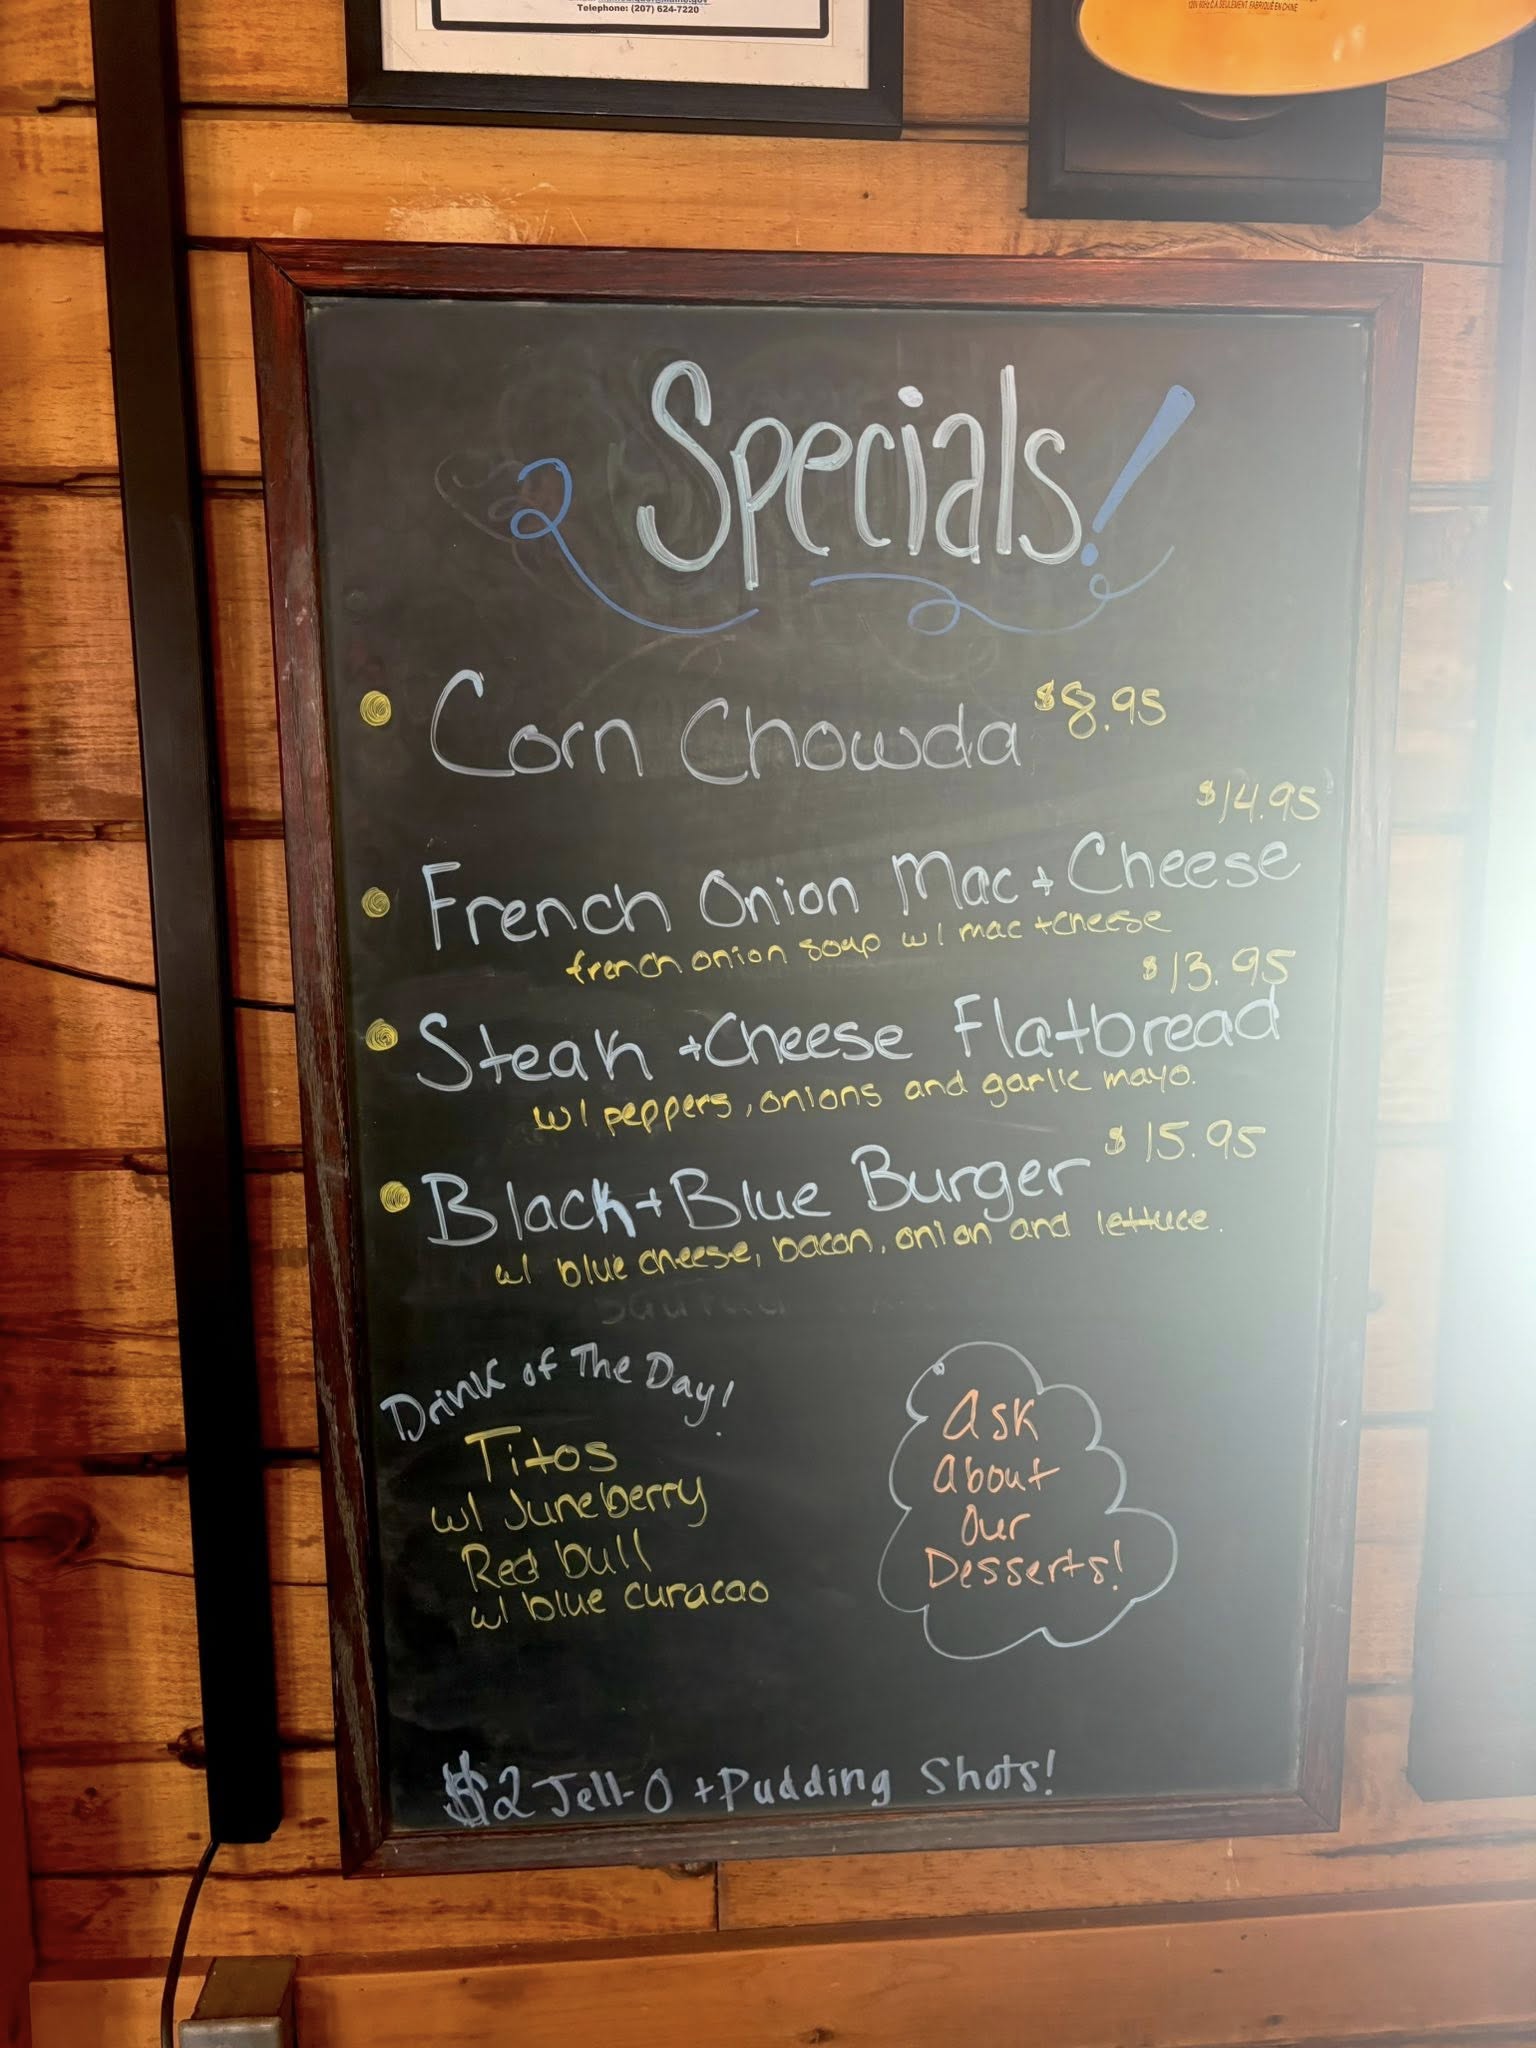 Telephone: (207) 624-7220
120V 60Hz CA SEULEMENT. FABRIQUÉ EN CHINE
Specials!
Corn Chowda $8.95
$14.95
French Onion Mac + Cheese
french onion soup w/ mac + cheese
$13.95
Steak + Cheese Flatbread
w/ peppers, onions and garlic mayo.
Black + Blue Burger $15.95
w/ blue cheese, bacon, onion and lettuce.
Drink of The Day!
Titos
w/ Juneberry
Red bull
w/ blue curacao
Ask
About
Our
Desserts!
$2 Jell-O + Pudding Shots!